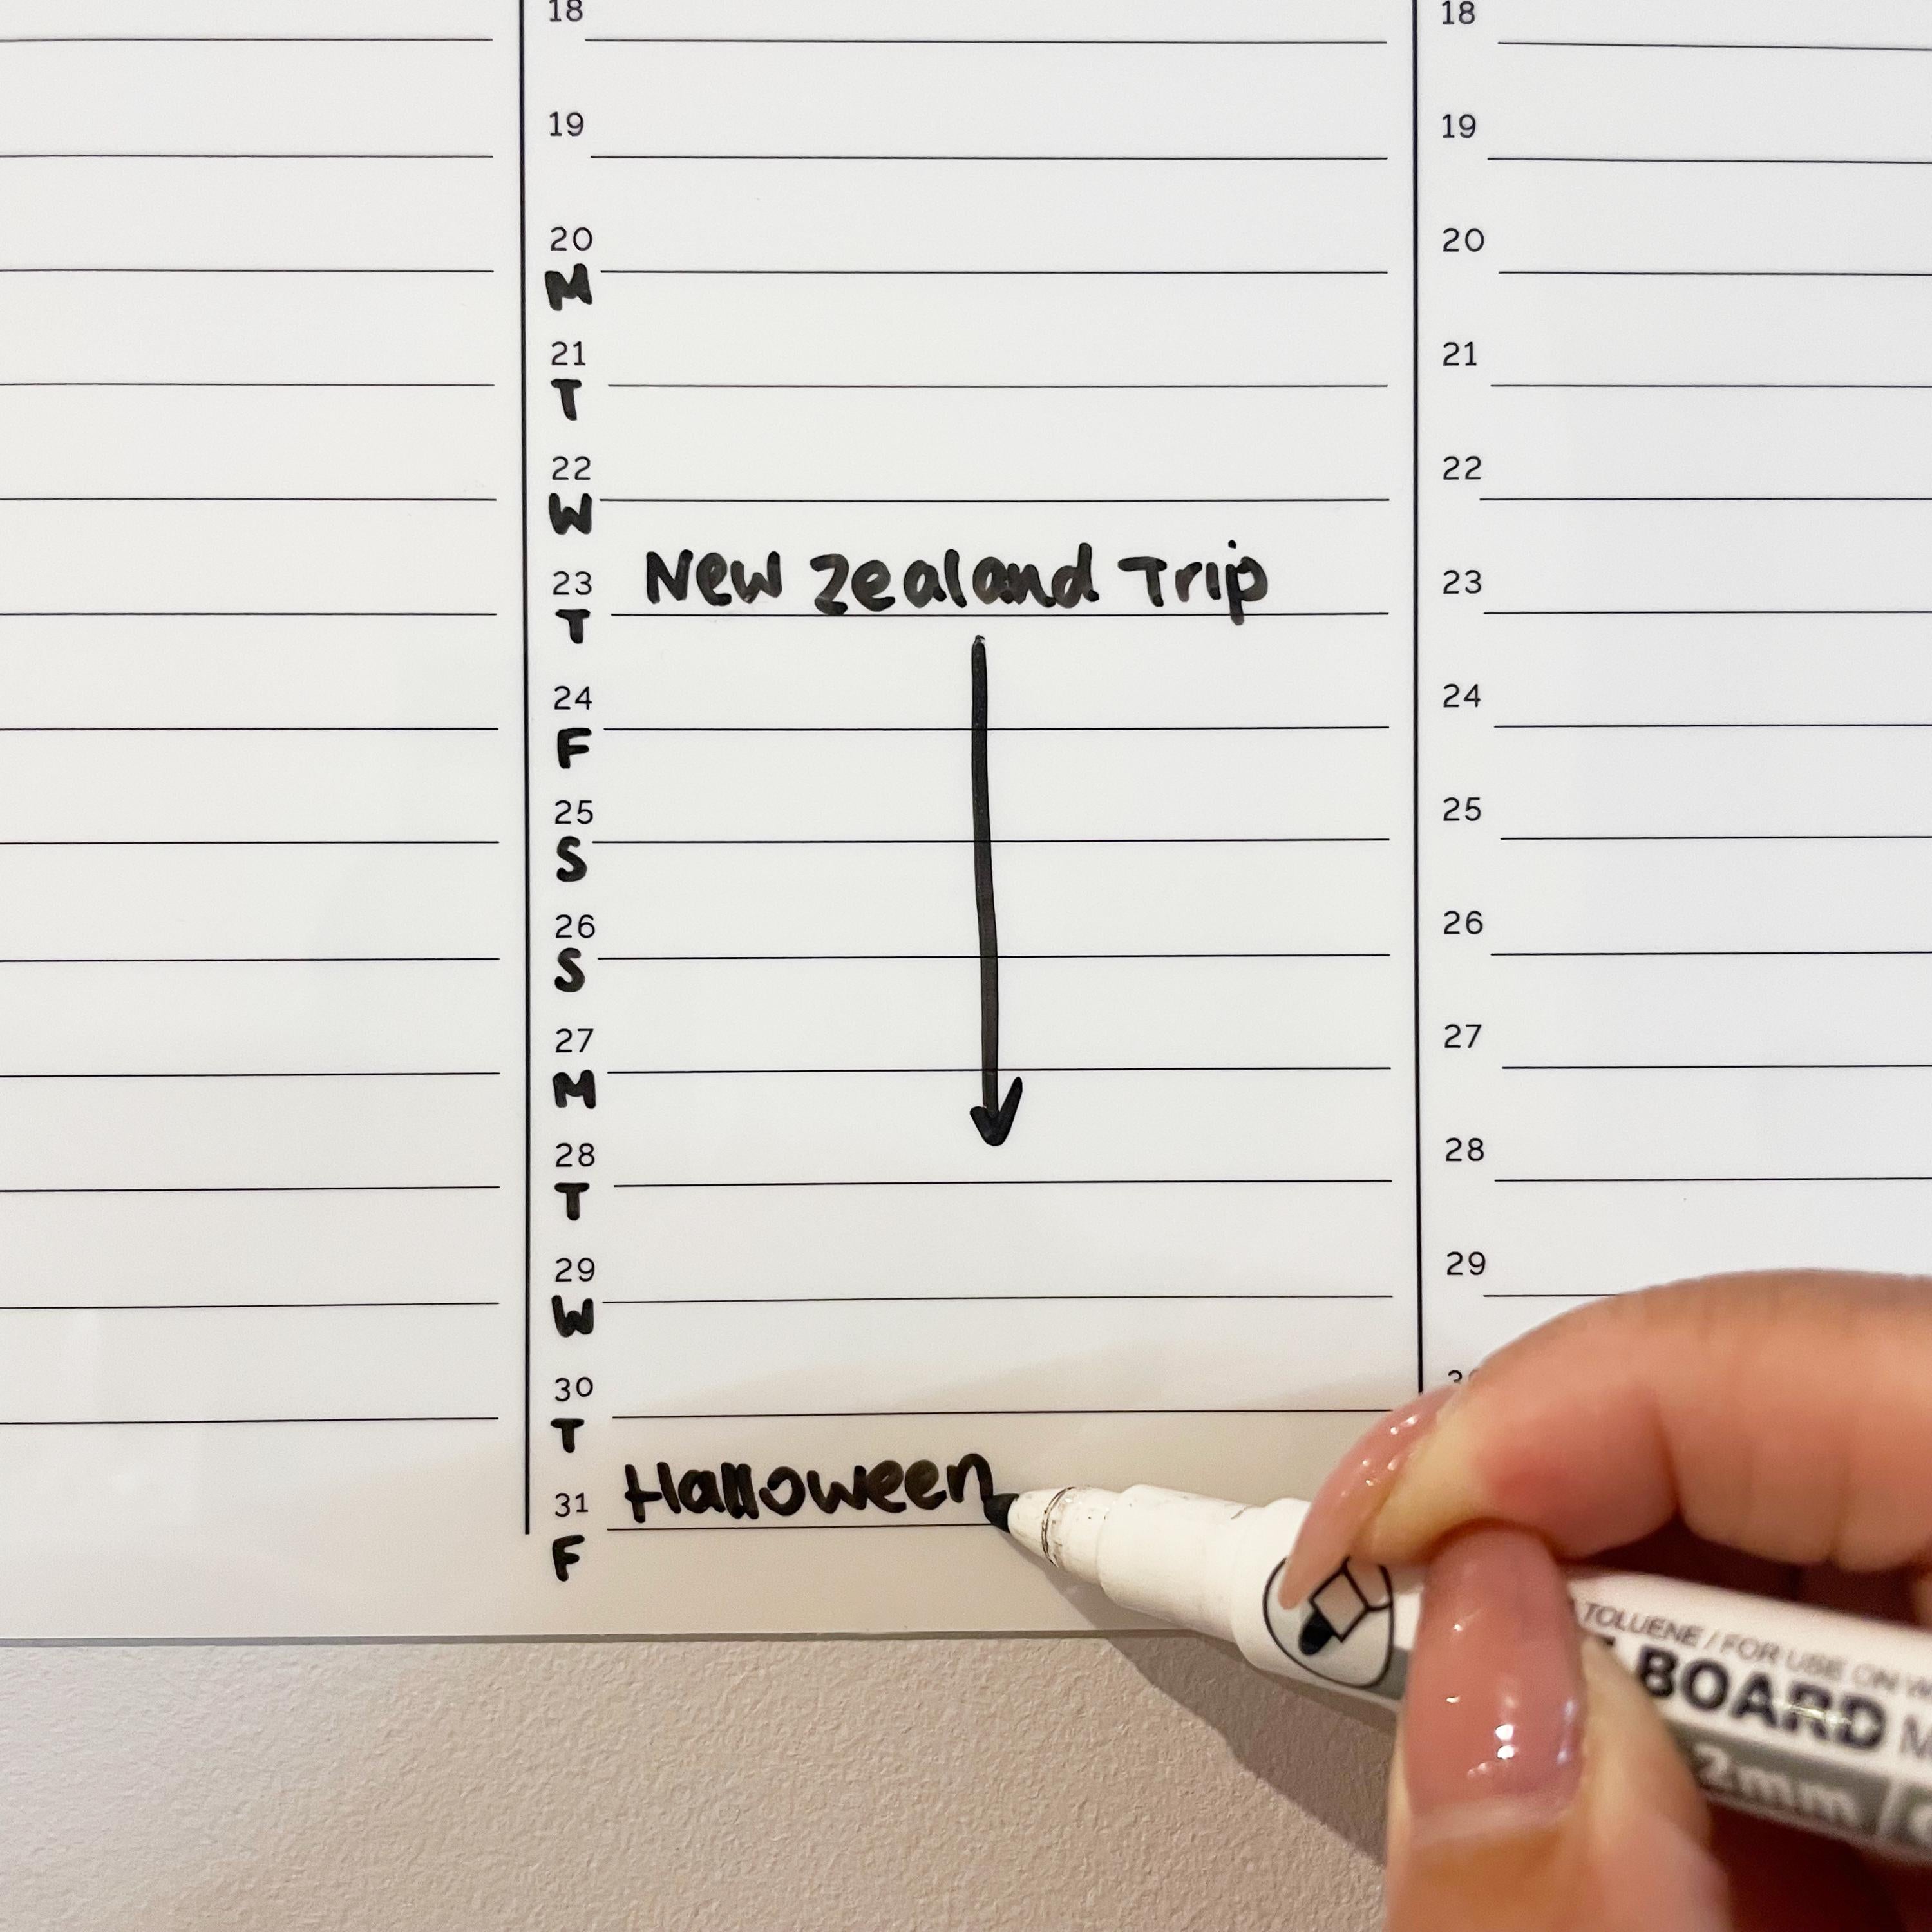 18
19
20
M
21
T
22
W
23 New Zealand Trip
T
24
F
25
S
26
S
27
M
28
T
29
W
30
T
31 Halloween
F
18
19
20
21
22
23
24
25
26
27
28
29
TOLUENE / FOR USE ON
BOARD
2mm